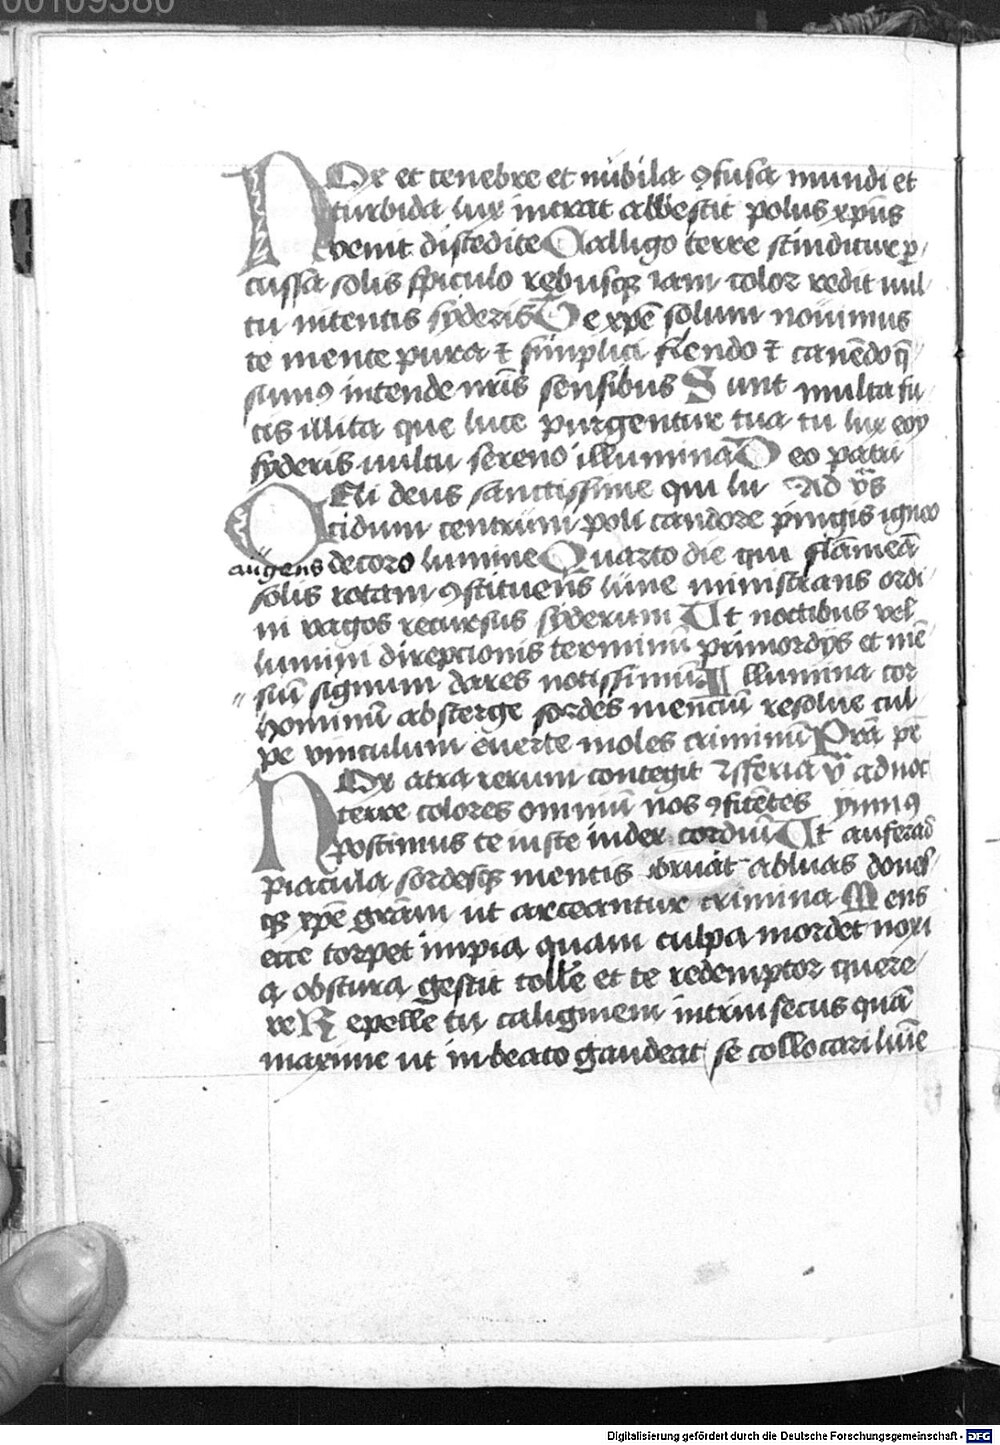 00109380
Nox et tenebre et nubila ꝯfusa mundi et
turbida lux intrat albescit polus xp̄us
venit discedite Caligo terre scinditur ꝑ
cussa solis spiculo rebusqꝫ iam color redit uul
tu nitentis syderis Te xp̄e solum nouimus
te mente pura ⁊ simplici flendo ⁊ canēdo q̄
sumꝰ intende nr̄is sensibus Sunt multa fu
cis illita que luce purgentur tua tu lux eoy
syderis uultu sereno illumina Deo patri
Celi deus sanctissime qui lu Ad vr̄s
cidum centrum poli candore pingis igneo
augens decoro lumine Quarto die qui flāmeā
solis rotam ꝯstituens lune ministrans ordi
ni vagos recursus syderum Ut noctibus vel
lumini direpcionis terminū primordijs et mē
siū signum dares notissimū Illumina cor
hominū absterge sordes menciū resolue cul
pe vinculum euerte moles criminū Prā pē
Nox atra rerum contegit ꝯfferia v̄ ad noc
terre colores omniū nos ꝯfitētes ymnꝰ
poscimus te iuste iudex cordiū Ut auferad
piacula sordesqꝫ mentis abluas dones
qꝫ xp̄e grām ut arceantur crimina Mens
ecce torpet impia quam culpa mordet noxi
a obscura gestit tolle et te redemptor quere
re Repelle tu caliginem intrinsecus quā
maxime ut in beato gaudeat se collocari lūīe
Digitalisierung gefördert durch die Deutsche Forschungsgemeinschaft - DFG